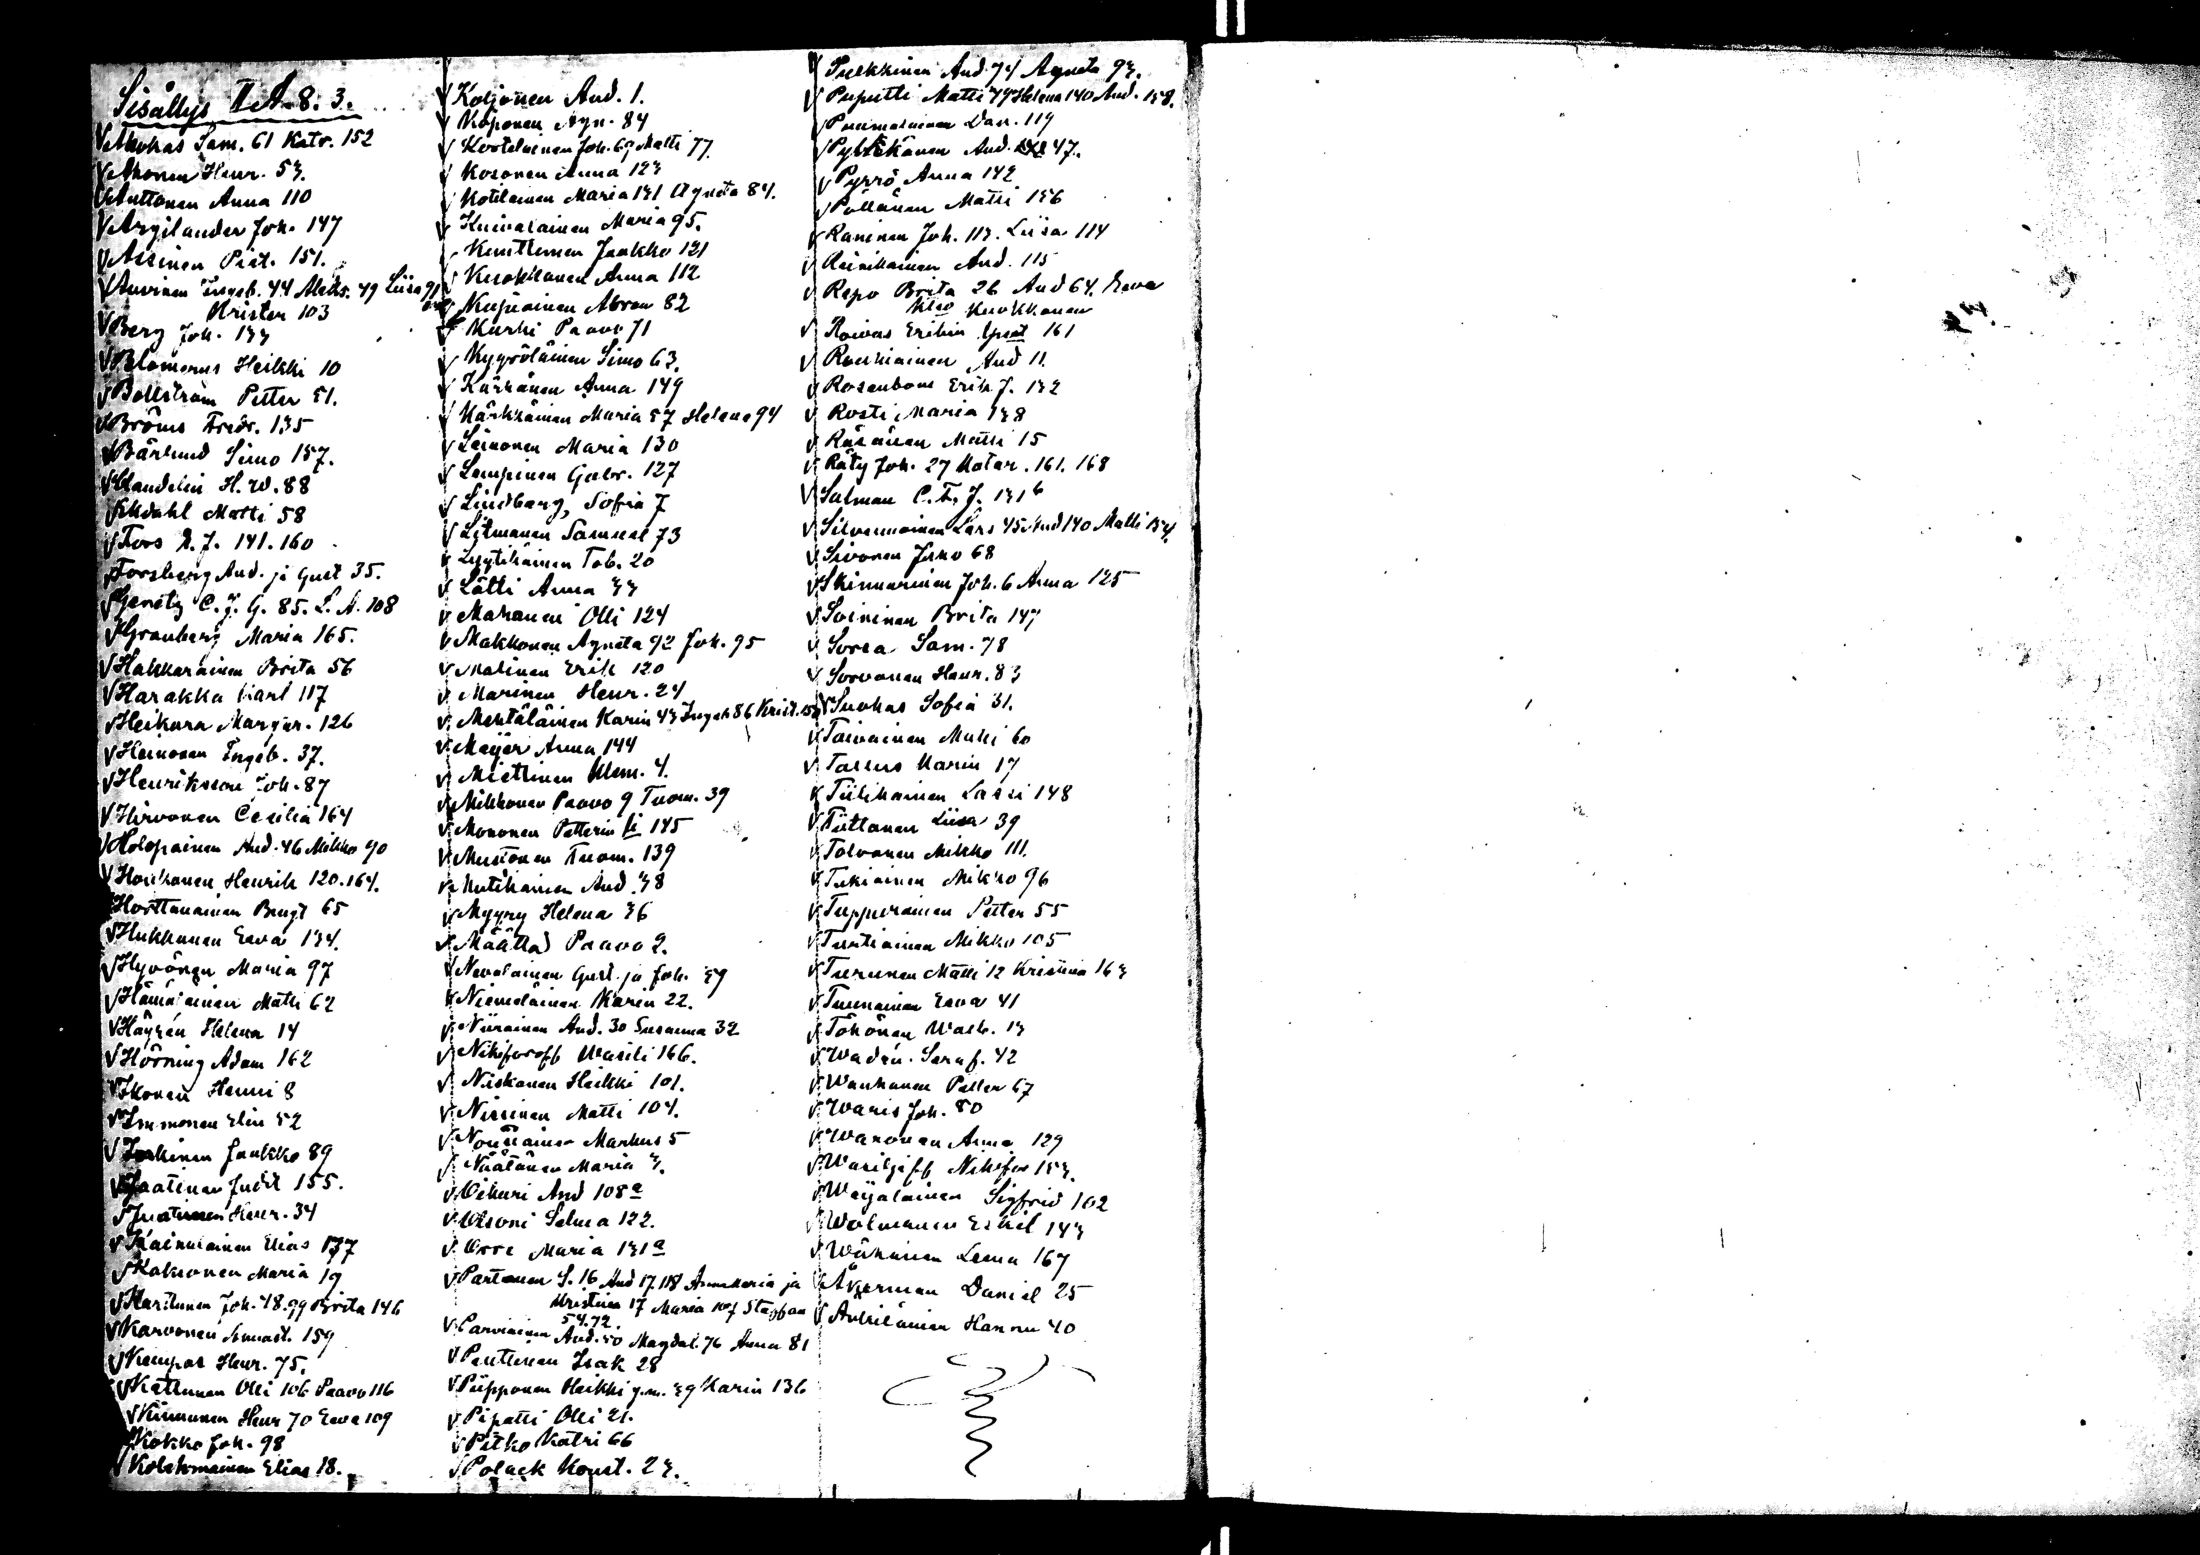 Sisällys II A. 8. 3.
Ahokas Sam. 61 Katr. 152
Ahonen Henr. 53.
Anttonen Anna 110
Argilander Joh. 147
Assinen Piet. 151.
Auvinen Ingeb. 44 Aleks. 49 Liisa 91
Krister 103
Berg Joh. 133
Blomerus Heikki 10
Bollström Petter 51.
Broms Fredr. 135
Bärlund Simo 157.
Clandelin H. W. 88
Ekdahl Matti 58
Fors A. J. 141. 160
Forsberg And. ja Gust 35.
Genetz C. J. G. 85. L. A. 108
Granberg Maria 165.
Hakkarainen Brita 56
Harakka Karl 117
Heikura Margar. 126
Heinonen Ingeb. 37.
Henriksson Joh. 87
Hirvonen Cecilia 164
Holopainen And. 46 Mikko 90
Honkanen Henrik 120. 164.
Horttanainen Bengt 65
Hukkanen Eeva 134.
Hyvönen Maria 97
Hämäläinen Matti 62
Häyrén Helena 14
Hörning Adam 162
Ikonen Henni 8
Immonen Elin 52
Jaakko 89
Jaatinen Judit 155.
Juutinen Henr. 34
Kainulainen Elias 137
Kakkonen Maria 19
Karttunen Joh. 48. 99 Brita 146
Karvonen Annast. 159
Kempas Henr. 75.
Kettunen Olli 106 Paavo 116
Kinnunen Henr 70 Eeva 109
Kokko Joh. 98
Kolehmainen Elias 18.
Koljonen And. 1.
Koponen Agn. 84
Kortelainen Joh. 69 Matti 77.
Kosonen Anna 123
Kotilainen Maria 131 Agneta 84.
Kuivalainen Maria 95.
Kunttinen Jaakko 121
Kuokkanen Anna 112
Kupiainen Abram 82
Kurki Paavo 71
Kyyröläinen Simo 63.
Kärnänen Anna 149
Kärkkäinen Maria 57 Helena 94
Leinonen Maria 130
Lempinen Gabr. 127
Lindberg, Sofia 7
Litmanen Samuel 73
Lyytikäinen Tob. 20
Lätti Anna 33
Makanen Olli 124
Makkonen Agneta 92 Joh. 95
Malinen Erik 120
Marinen Henr. 24
Mehtäläinen Karin 43 Ingeb 86 Krist.
Meijer Anna 144
Miettinen Klem. 4.
Mikkonen Paavo 9 Tuom. 39
Mononen Petteri 145
Mustonen Tuom. 139
Mutikainen And. 38
Myyry Helena 36
Määttä Paavo 2.
Nevalainen Gust. ja Joh. 59
Niemeläinen Karin 22.
Niirainen And. 30 Susanna 32
Nikiforoff Wasili 166.
Niskanen Heikki 101.
Nissinen Matti 104.
Nousiainen Markus 5
Näätänen Maria 3.
Oikuri And 108a
Olsoni Selma 122.
Orre Maria 131a
Partanen S. 16 And 17. 118 Annamaria ja
Kristina 17 Maria 107 Staffan
54. 72.
Parviainen And. 50 Magdal. 76 Anna 81
Pentinen Isak 28
Piipponen Heikki y.m. 39 Karin 136
Pipatti Olli 21.
Pitko Katri 66
Polack Konst. 23.
Pulkkinen And. 74 Agneta 93.
Puputti Matti 79 Helena 140 And. 158.
Puumalainen Dan. 119
Pylkkänen And. 47.
Pyrrö Anna 142
Pöllänen Matti 156
Raninen Joh. 113. Liisa 114
Reinikainen And. 115
Repo Brita 26 And 64. Eeva
Kuokkanen
Roivas 161
Ronkiainen And 11.
Rosenbom Erik J. 132
Rosti Maria 138
Räsänen Matti 15
Räty Joh. 27 Katar. 161. 168
Salman C. F. J. 131b
Silvennoinen Lars 45 And 140 Matti 154.
Sivonen Juho 68
Skinnarinen Joh. 6 Anna 125
Soininen Brita 147
Sorsa Sam. 78
Sorvanen Henr. 83
Suokas Sofia 31.
Taivainen Matti 60
Tallus Karin 17
Tiilikainen Lassi 148
Tiittanen Liisa 39
Tolvanen Mikko 111.
Tukiainen Mikko 96
Tuppurainen Petter 55
Turtiainen Mikko 105
Turunen Matti 12 Kristiina 163
Tuunainen Eeva 41
Tökönen Walb. 13
Wadén Seraf. 42
Wanhanen Petter 67
Waris Joh. 80
Waronen Anna 129
Wasiljeff Nikifor 153.
Weijalainen Sigfrid 102
Wolmanen Eskil 143
Wänänen Leena 167
Åkerman Daniel 25
Hannu 40